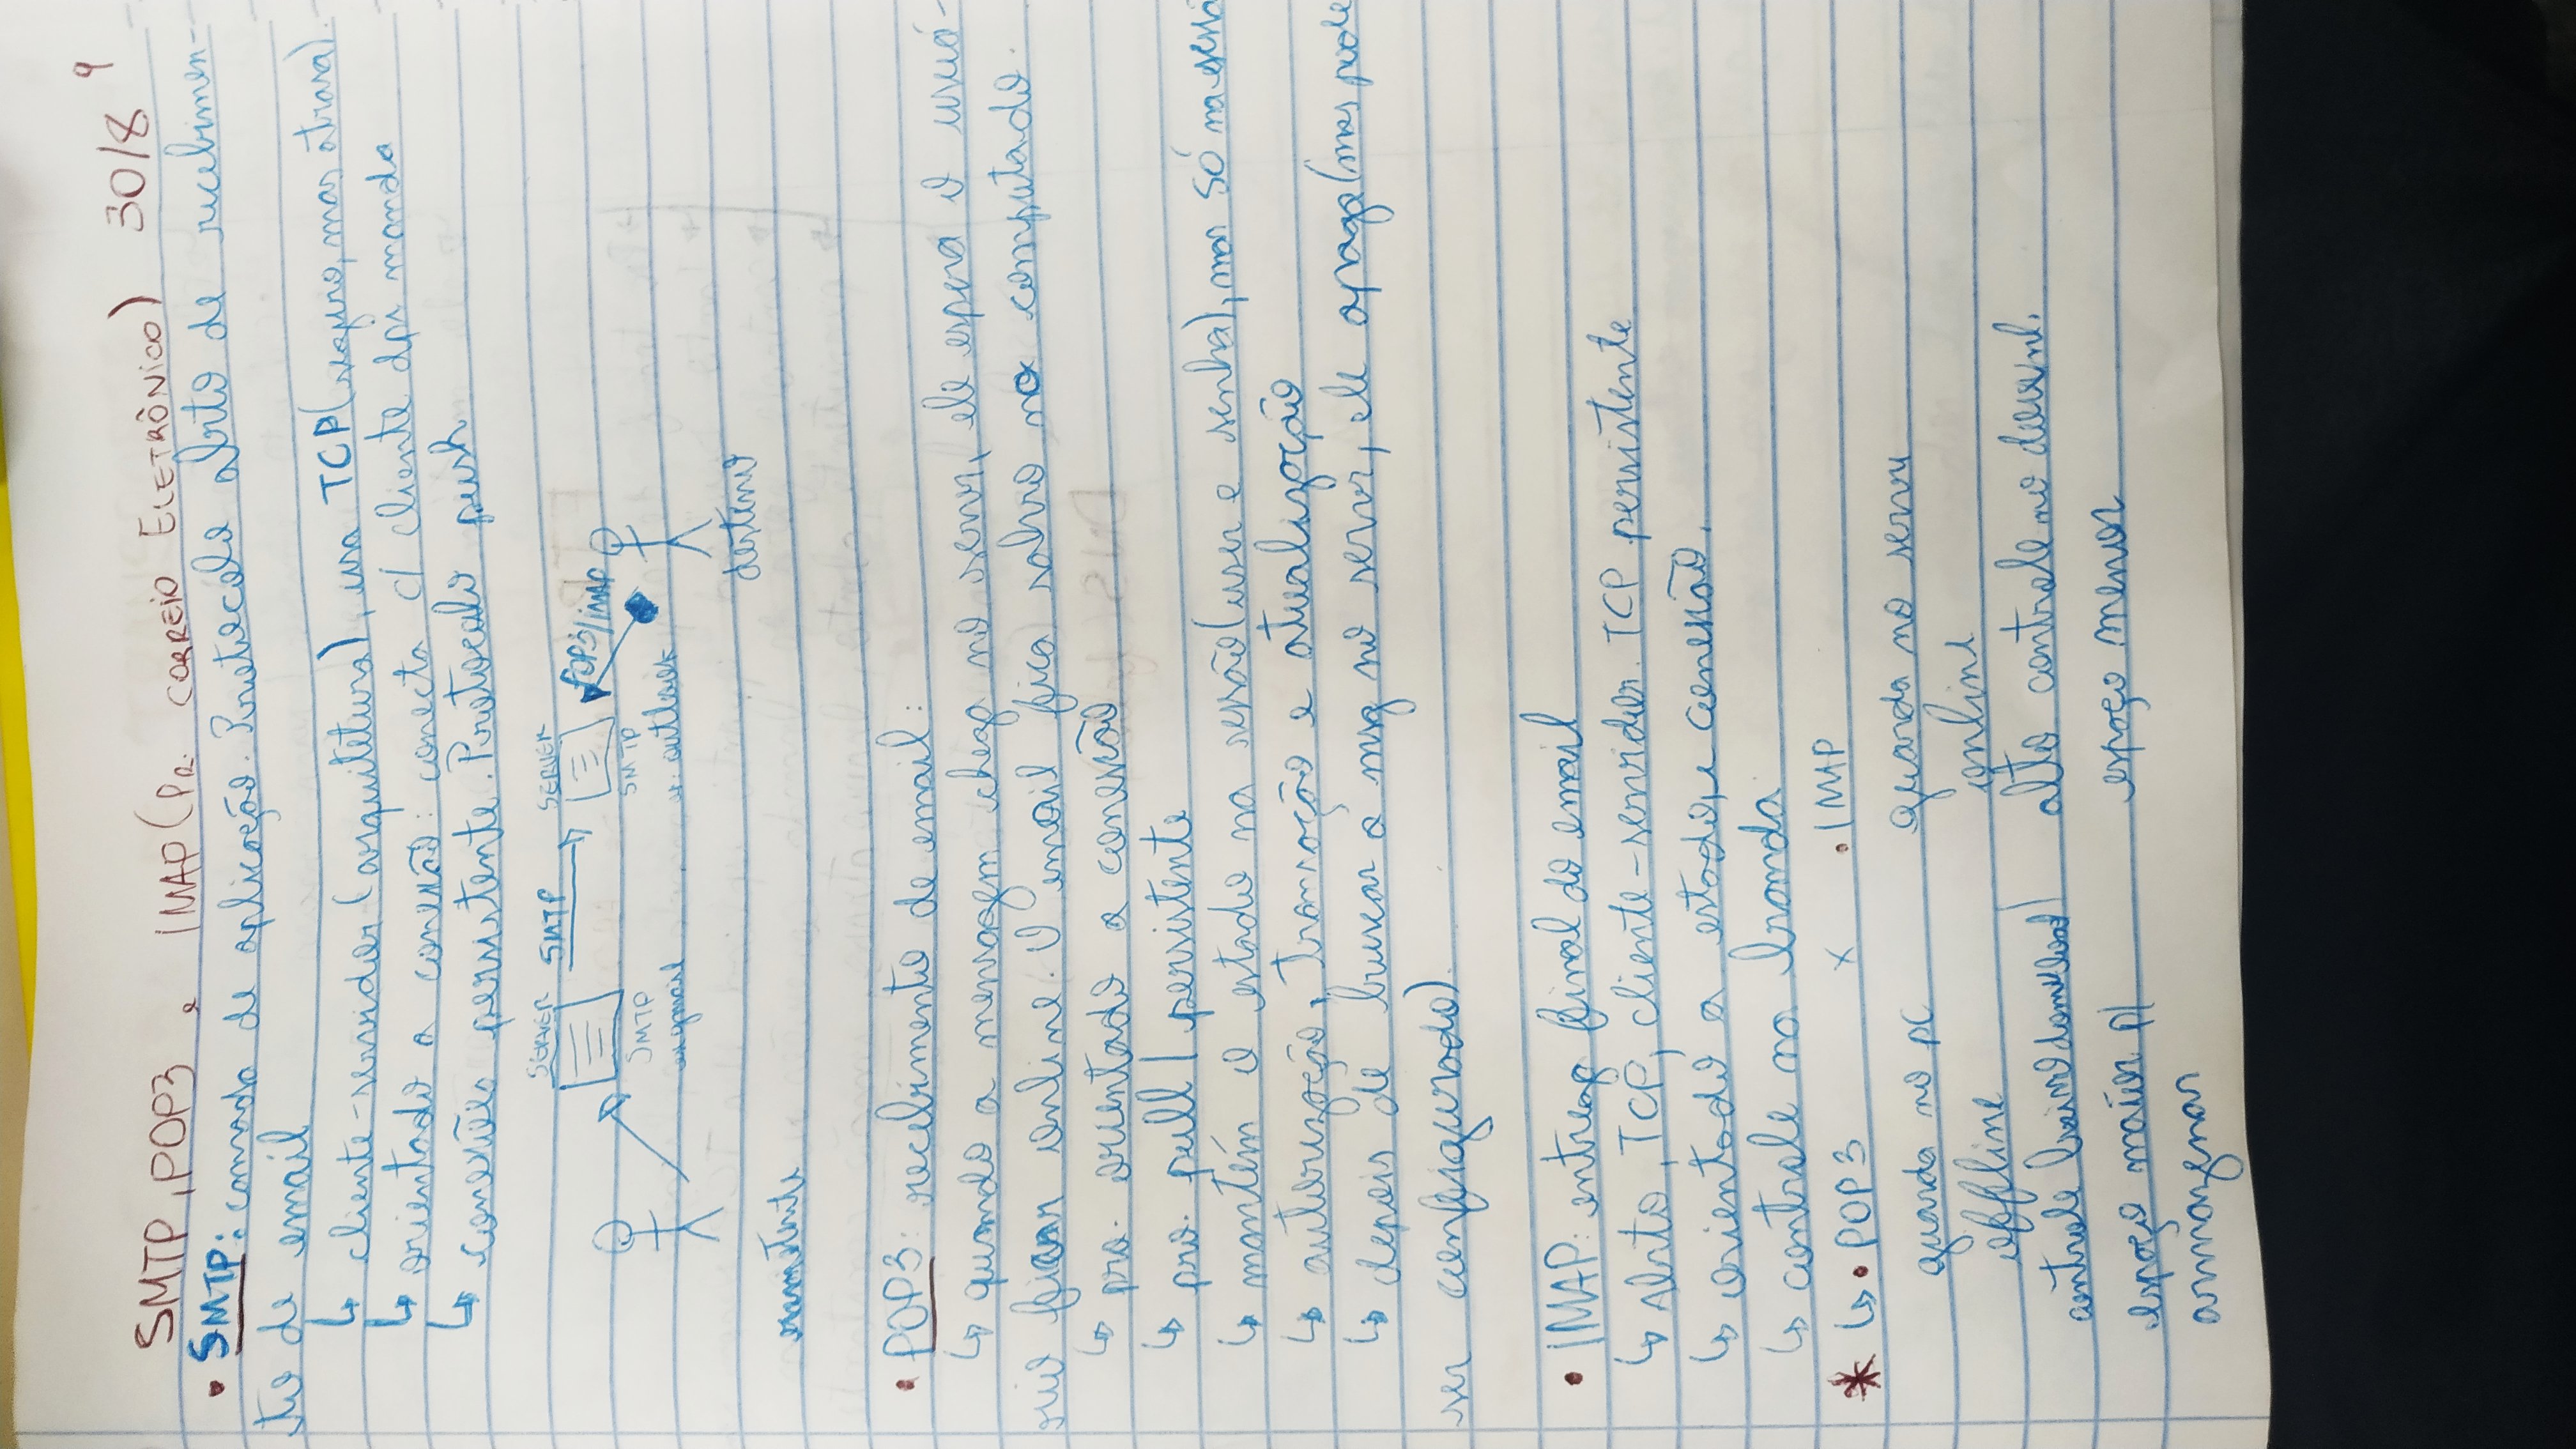 9
SMTP, POP3 e IMAP (PR. CORREIO ELETRÔNICO) 30/8
• SMTP: camada de aplicação. Protocolo abrto de recebimen-
to de email
↳ cliente-servidor (arquitetura), usa TCP (seguro, mas atrasa).
↳ orientado a conexão: conecta c/ cliente dpi manda
↳ conexões persistente. Protocolo push
SERVER SMTP SERVER
POP3/IMAP
SMTP SMTP
ex gmail ex. outlook
destino
remetente
• POP3: recebimento de email:
↳ quando a mensagem chega no servr, ele espera o usuá-
rio ficar online. O email fica salvo no computado.
↳ pro. orientado a conexão
↳ pro. pull / persistente
↳ mantém o estado na sessão (user e senha), mas só na sessã
↳ autorização, transação e atualização
↳ depois de buscar a msg no servr, ele apaga (mas pode
ser configurado).
• IMAP: entrega final do email
↳ abrto, TCP, cliente-servidor. TCP persistente
↳ orientado a estado, e conexão.
↳ controle na banda
* ↳ • POP3 x • IMAP
guarda no pc guarda no servr
offline online
controle baixo alto controle no
espaço maior p/ espaço menor
armazenar